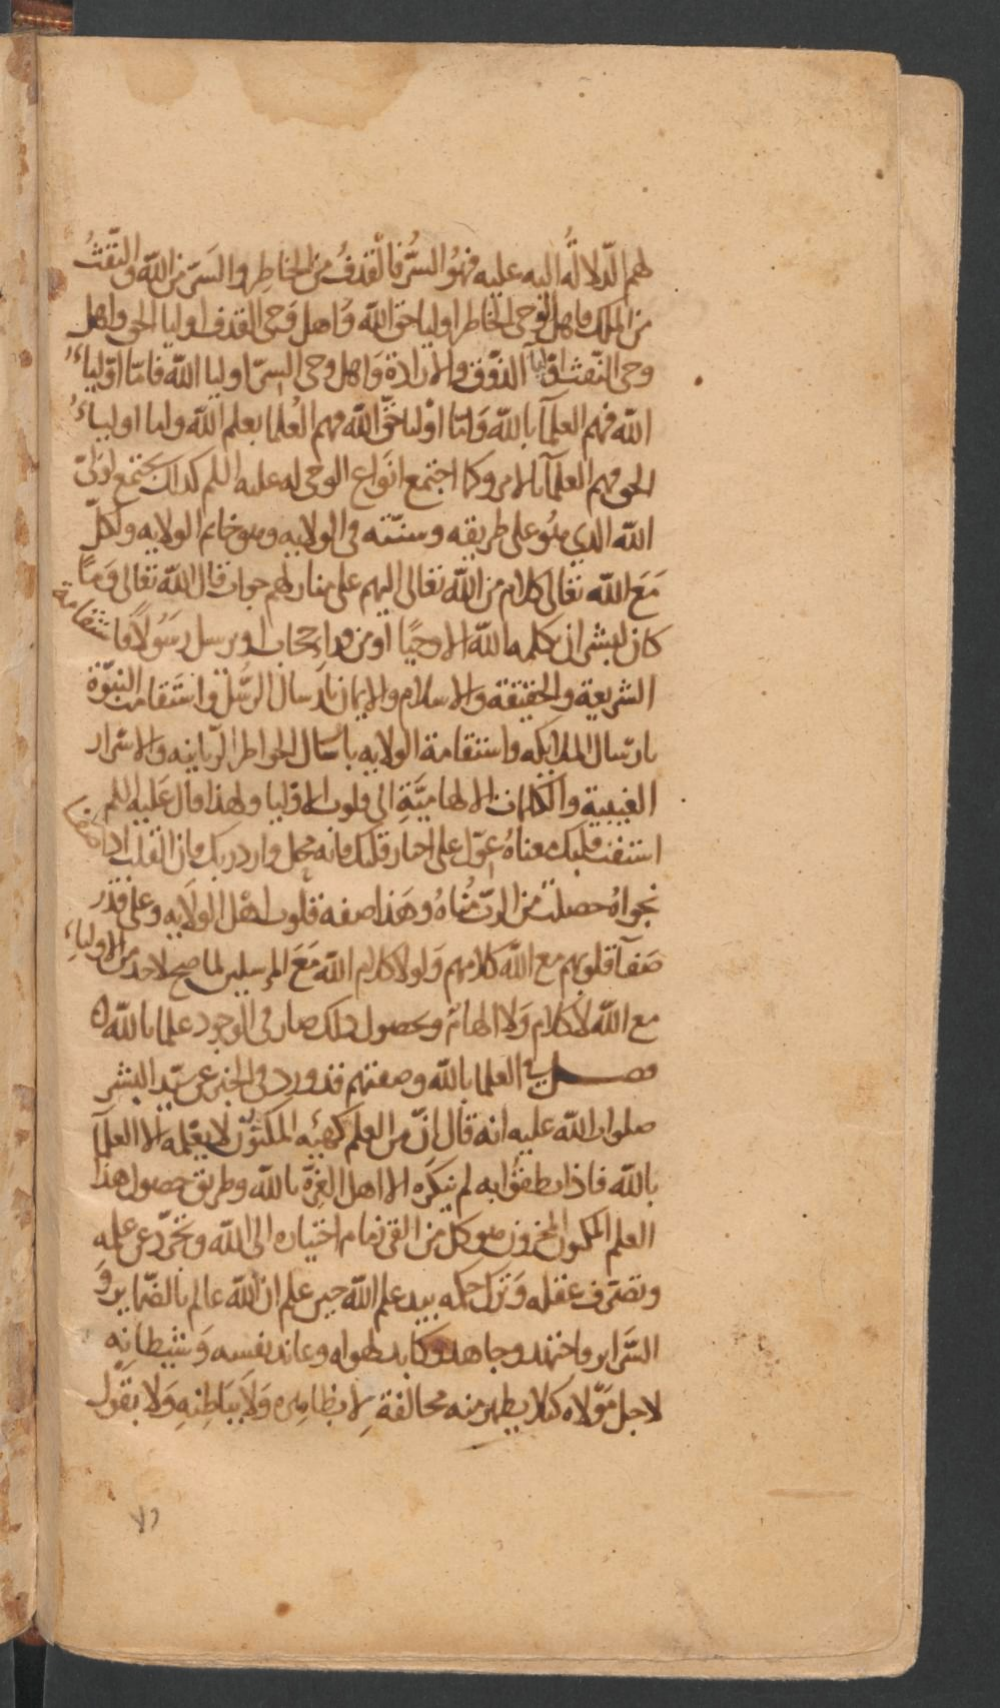 لهم الدلالة اليه عليه فهو السر فالقذف من الخاطر والسر من الله والنفث
من الملك واهل وحى الخاطر اوليا حق الله واهل وحى القذف اوليا الحق واهل
وحى النفث اوليا الذوق والارادة واهل وحى السر اوليا الله فاما اولياء
الله فهم العلمآ بالله واما اوليا حق الله فهم العلما بعلم الله واما اولياء
الحق فهم العلمآ بالامر وكما اجتمع انواع الوحى له عليه السلم كذلك يجتمع لولى
الله الذي هو على طريقه وسنته فى الولايه وهو خاتم الولايه ولكل
مع الله تعالى كلام من الله تعالى اليهم على منازلهم جواب قال الله تعالى وما
كان لبشر ان يكلمه الله الا وحيا او من وراء حجاب او يرسل رسولا فاستقامة
الشريعة والحقيقة والاسلام والايمان بارسال الرسل واستقامة النبوة
بارسال الملايكه واستقامة الولايه بارسال الخواطر الربانيه والاسرار
الغيبية والكلمات الالهامية الى قلوب الاوليا ولهذا قال عليه السلم
استفت قلبك معناه عول على اخبار قلبك فانه محل وارد ربك فان القلب اذا
نجواه حصلت من الرب مناه وهذا صفة قلوب اهل الولايه وعلى قدر
صفآ قلوبهم مع الله كلامهم ولولا كلام الله مع المرسلين لما صح لاحد من الاولياء
مع الله لا كلام ولا الهام وبحصول ذلك صار فى الوجود علما بالله
فصل فى العلما بالله وصفتهم قد ورد فى الخبر عن سيد البشر
صلوات الله عليه انه قال ان من العلم كهيئه المكنون لا يعلمه الا العلمآ
بالله فاذا نطقوا به لم ينكره الا اهل الغرة بالله وطريق حصول هذا
العلم المكنون المخزون هو كل من القى زمام اختياره الى الله وتجرد عن علمه
وتصرف عقله وترك حكمه بيد علم الله حين علم ان الله عالم بالضماير و
السراير فاجتهد وجاهد وكابد هواه وعاند نفسه وشيطانه
لاجل مولاه كيلا يظهر منه مخالفة لا بظاهره ولا بباطنه ولا يقول